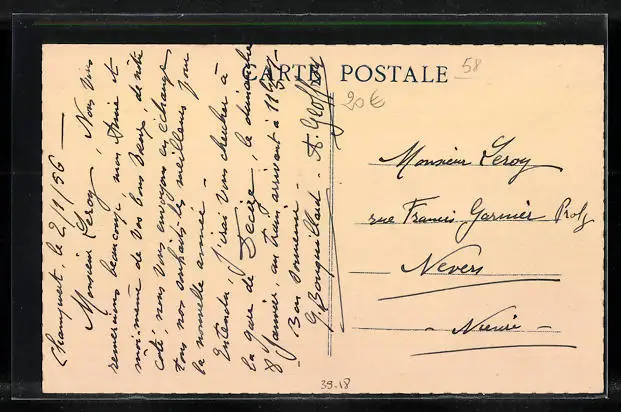 CARTE POSTALE
58
20€
Champvert, le 2/1/56 —
Monsieur Leroy, Nous vous
remercions beaucoup, mon Amie et
moi-même de vos bons vœux de notre
côté, nous vous envoyons en échange
tous nos souhaits les meilleurs pour
la nouvelle année —
Entendu, j'irai vous chercher à
la gare de Decize, le dimanche
8 Janvier, au train arrivant à
— Bon souvenir —
G. Bonguillard - A Geoffroy
Monsieur Leroy
rue Francis Garnier Prolg
Nevers
- Nièvre -
39-18